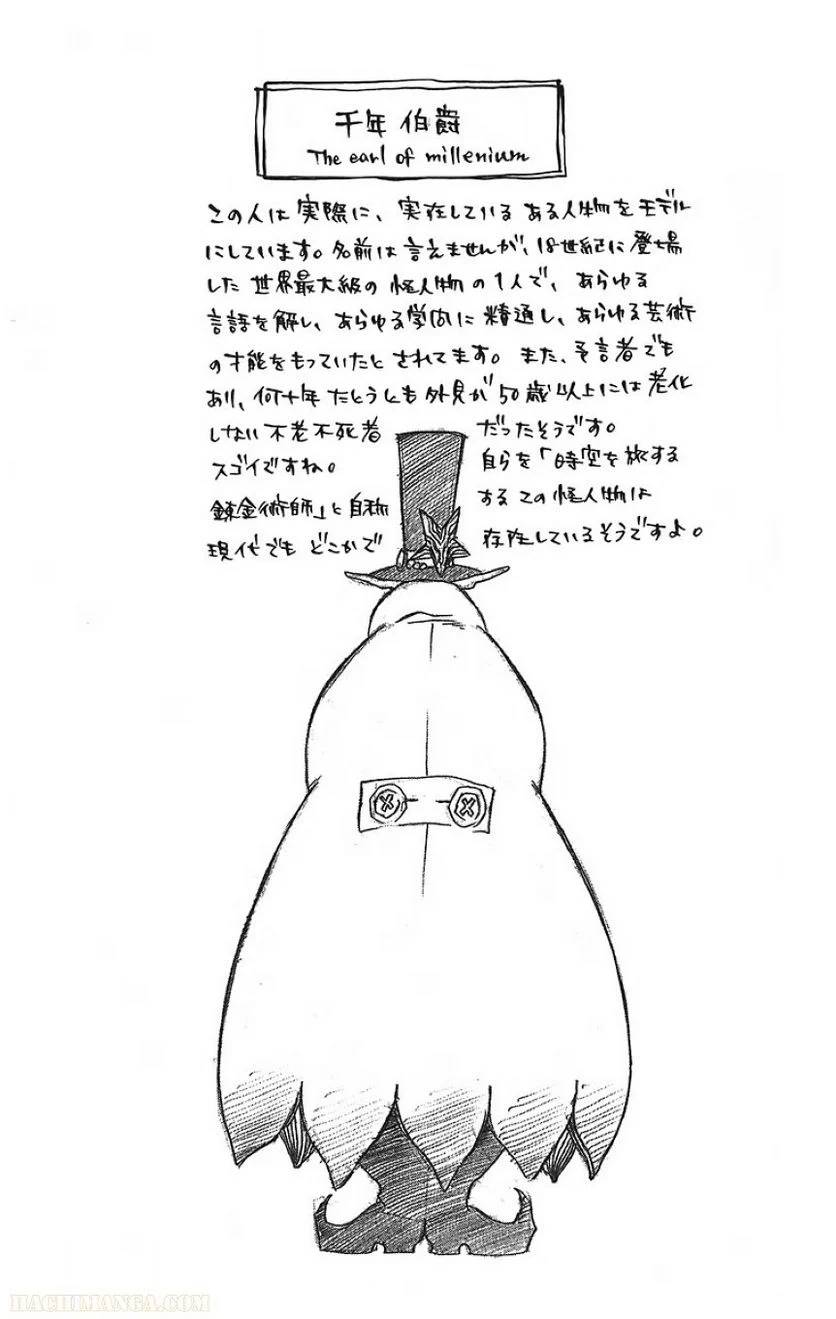 千年伯爵
The earl of millenium
この人は実際に、実在しているある人物をモデル
にしています。名前は言えませんが、18世紀に登場
した世界最大級の怪人物の1人で、あらゆる
言語を解し、あらゆる学問に精通し、あらゆる芸術
の才能をもっていたとされてます。また、予言者でも
あり、何十年たとうとも外見が50歳以上には老化
しない不老不死者だったそうです。
スゴイですね。自らを「時空を旅する
錬金術師」と自称するこの怪人物は
現代でもどこかで存在しているそうですよ。
HACHIMANGA.COM